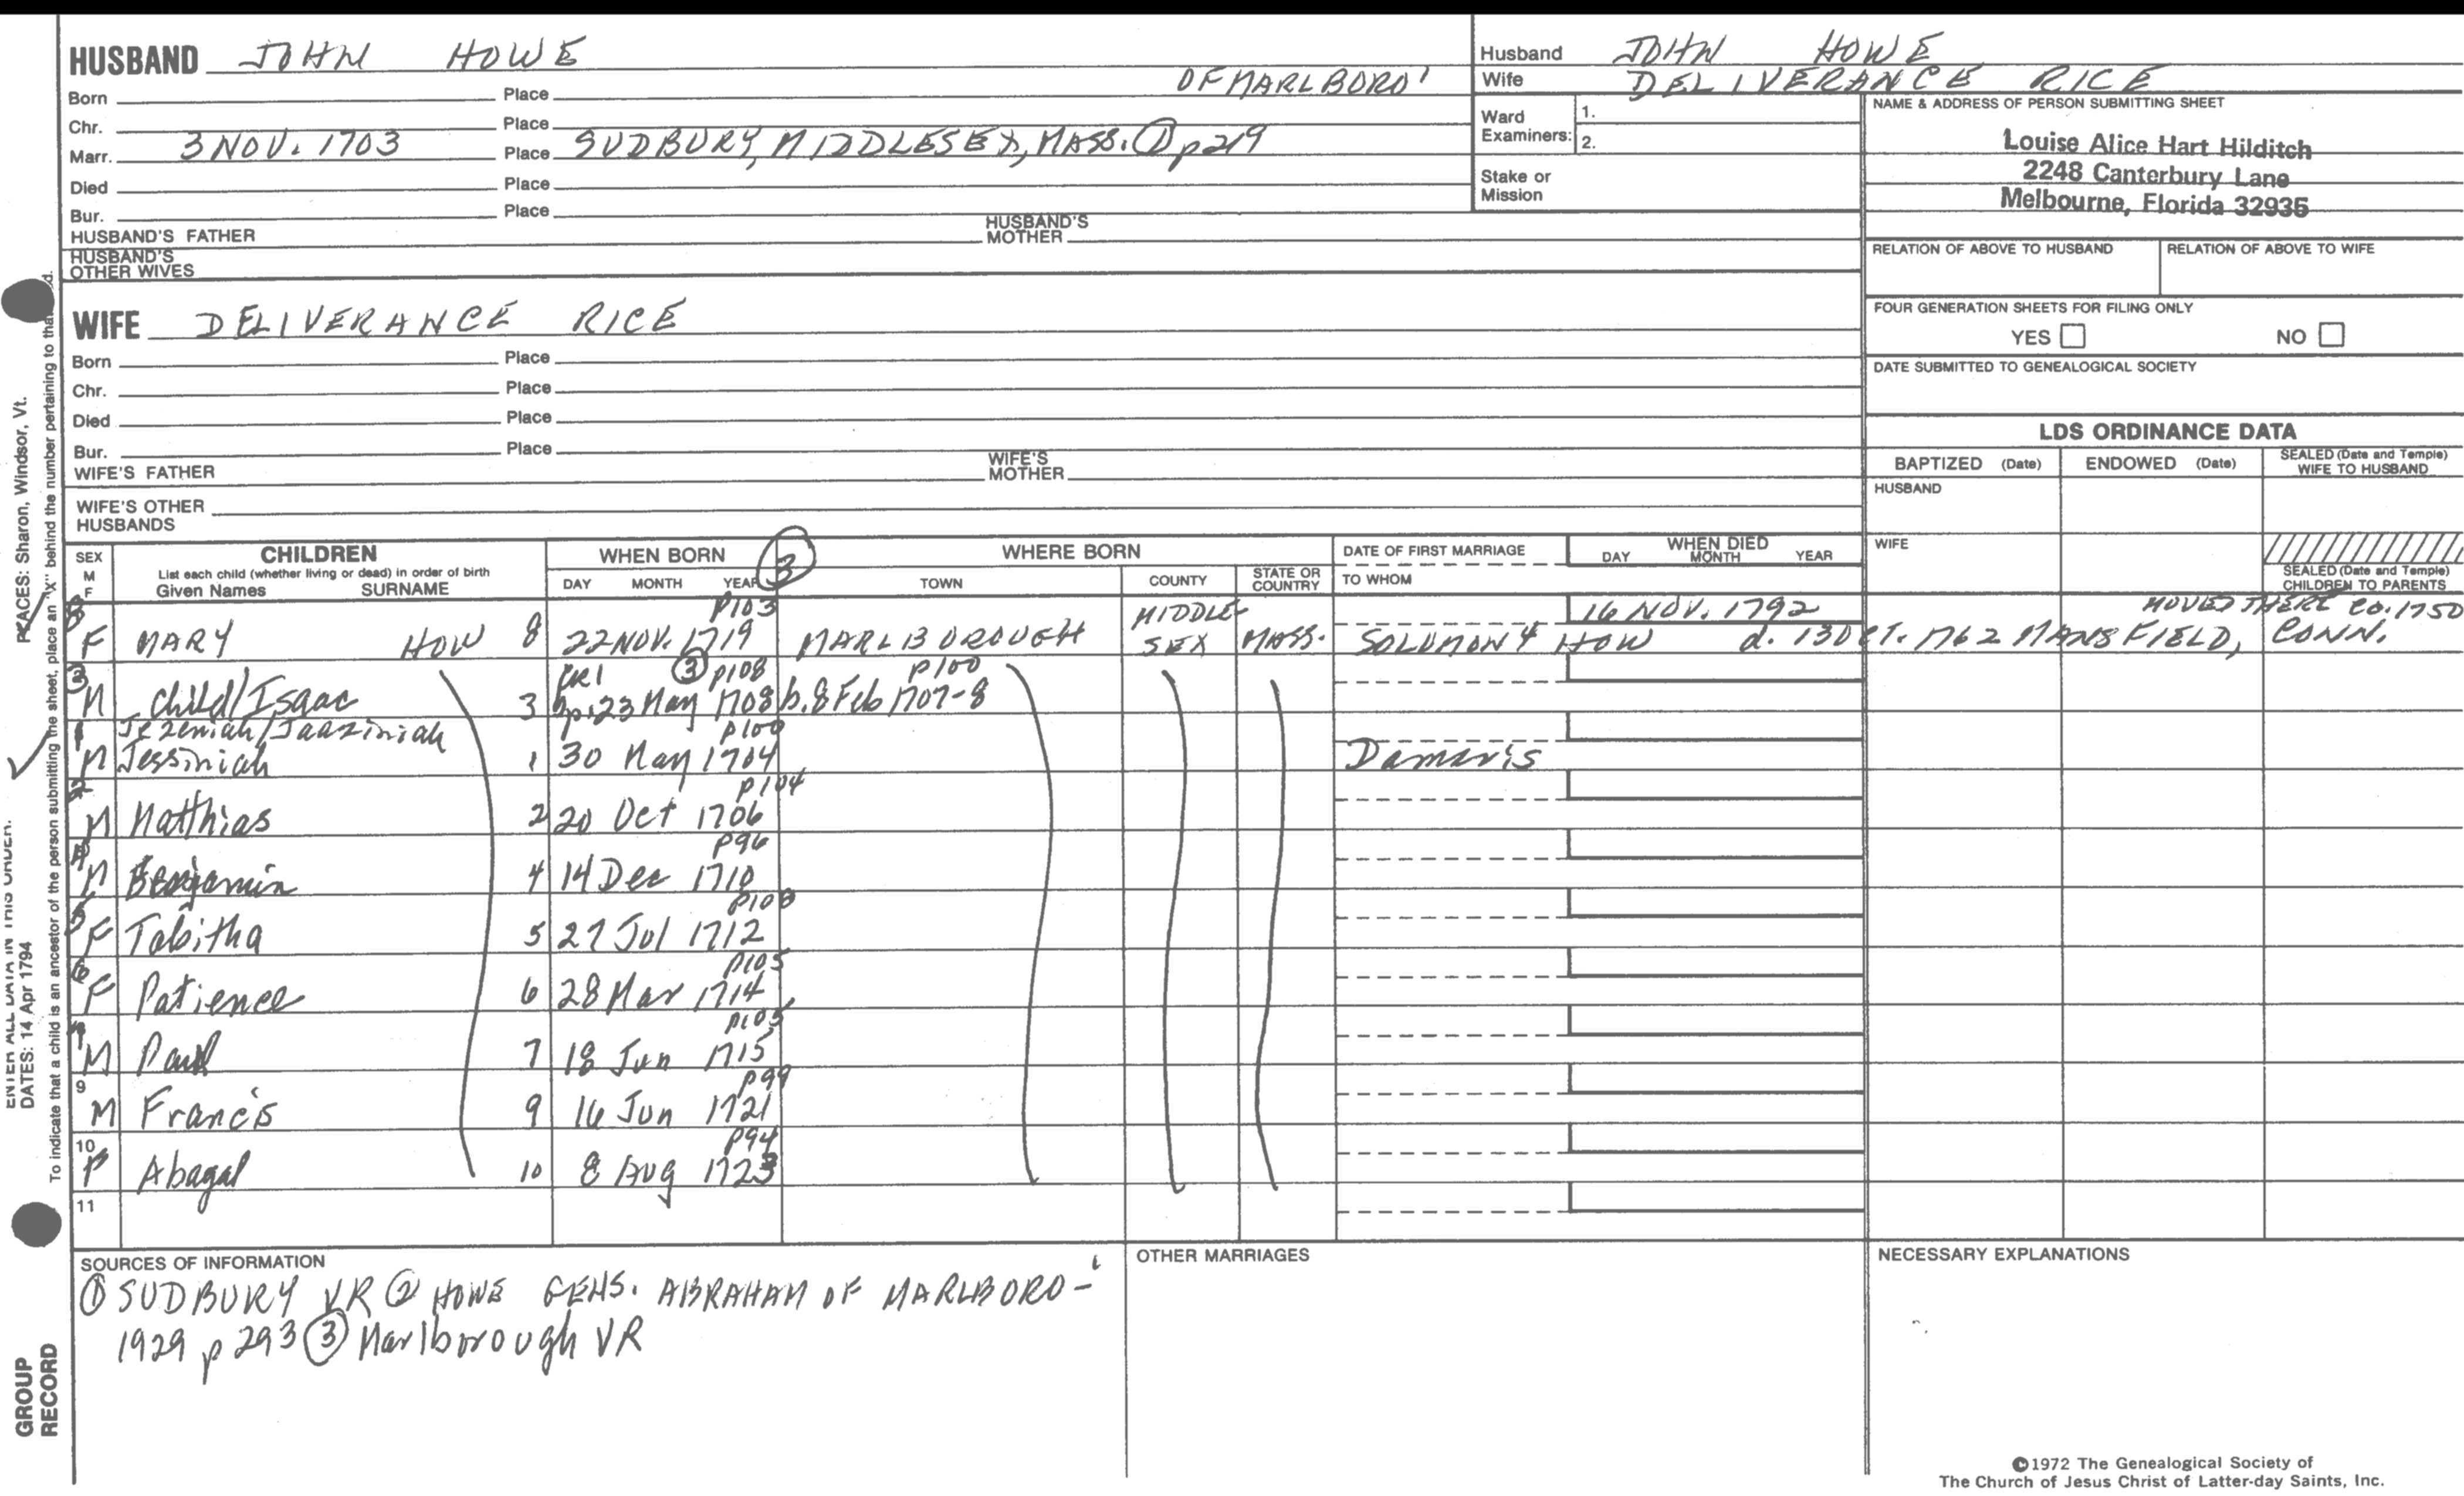 HUSBAND JOHN HOWE
OF MARLBORO'
Born Place
Chr. Place
Marr. 3 NOV. 1703 Place SUDBURY, MIDDLESEX, MASS. ① p219
Died Place
Bur. Place
HUSBAND'S FATHER HUSBAND'S MOTHER
HUSBAND'S OTHER WIVES
Husband JOHN HOWE
Wife DELIVERANCE RICE
Ward Examiners: 1.
2.
Stake or Mission
NAME & ADDRESS OF PERSON SUBMITTING SHEET
Louise Alice Hart Hilditch
2248 Canterbury Lane
Melbourne, Florida 32935
RELATION OF ABOVE TO HUSBAND RELATION OF ABOVE TO WIFE
FOUR GENERATION SHEETS FOR FILING ONLY
YES NO
DATE SUBMITTED TO GENEALOGICAL SOCIETY
WIFE DELIVERANCE RICE
Born Place
Chr. Place
Died Place
Bur. Place
WIFE'S FATHER WIFE'S MOTHER
WIFE'S OTHER HUSBANDS
LDS ORDINANCE DATA
BAPTIZED (Date) ENDOWED (Date) SEALED (Date and Temple) WIFE TO HUSBAND
HUSBAND
WIFE
SEALED (Date and Temple) CHILDREN TO PARENTS
SEX M F CHILDREN
List each child (whether living or dead) in order of birth
Given Names SURNAME
WHEN BORN ③ WHERE BORN
DAY MONTH YEAR TOWN COUNTY STATE OR COUNTRY
DATE OF FIRST MARRIAGE
TO WHOM
WHEN DIED
DAY MONTH YEAR
8 P103 MIDDLE 16 NOV. 1792 MOVED THERE ca. 1750
F MARY HOW 8 22 NOV. 1719 MARLBOROUGH SEX MASS. SOLOMON 4 HOW d. 13 OCT. 1762 MANSFIELD, CONN.
3 ③ p108 p100
M Child/Isaac 3 bp. 23 May 1708 b. 8 Feb 1707-8
1 Jezeniah/Jaaziniah p100
M Jessiniah 1 30 May 1704 Damaris
2 p104
M Matthias 2 20 Oct 1706
4 p96
M Benjamin 4 14 Dec 1710
5 p108
F Tabitha 5 27 Jul 1712
6 p105
F Patience 6 28 Mar 1714
7 p105
M Paul 7 18 Jun 1715
9 p99
M Francis 9 16 Jun 1721
10 p94
F Abagal 10 8 Aug 1723
11
SOURCES OF INFORMATION
① SUDBURY VR ② HOWE GENS. ABRAHAM OF MARLBORO-
1929 p 293 ③ Marlborough VR
OTHER MARRIAGES
NECESSARY EXPLANATIONS
©1972 The Genealogical Society of
The Church of Jesus Christ of Latter-day Saints, Inc.
PLACES: Sharon, Windsor, Vt.
ENTER ALL DATA IN THIS ORDER:
DATES: 14 Apr 1794
To indicate that a child is an ancestor of the person submitting the sheet, place an "X" behind the number pertaining to that
GROUP
RECORD